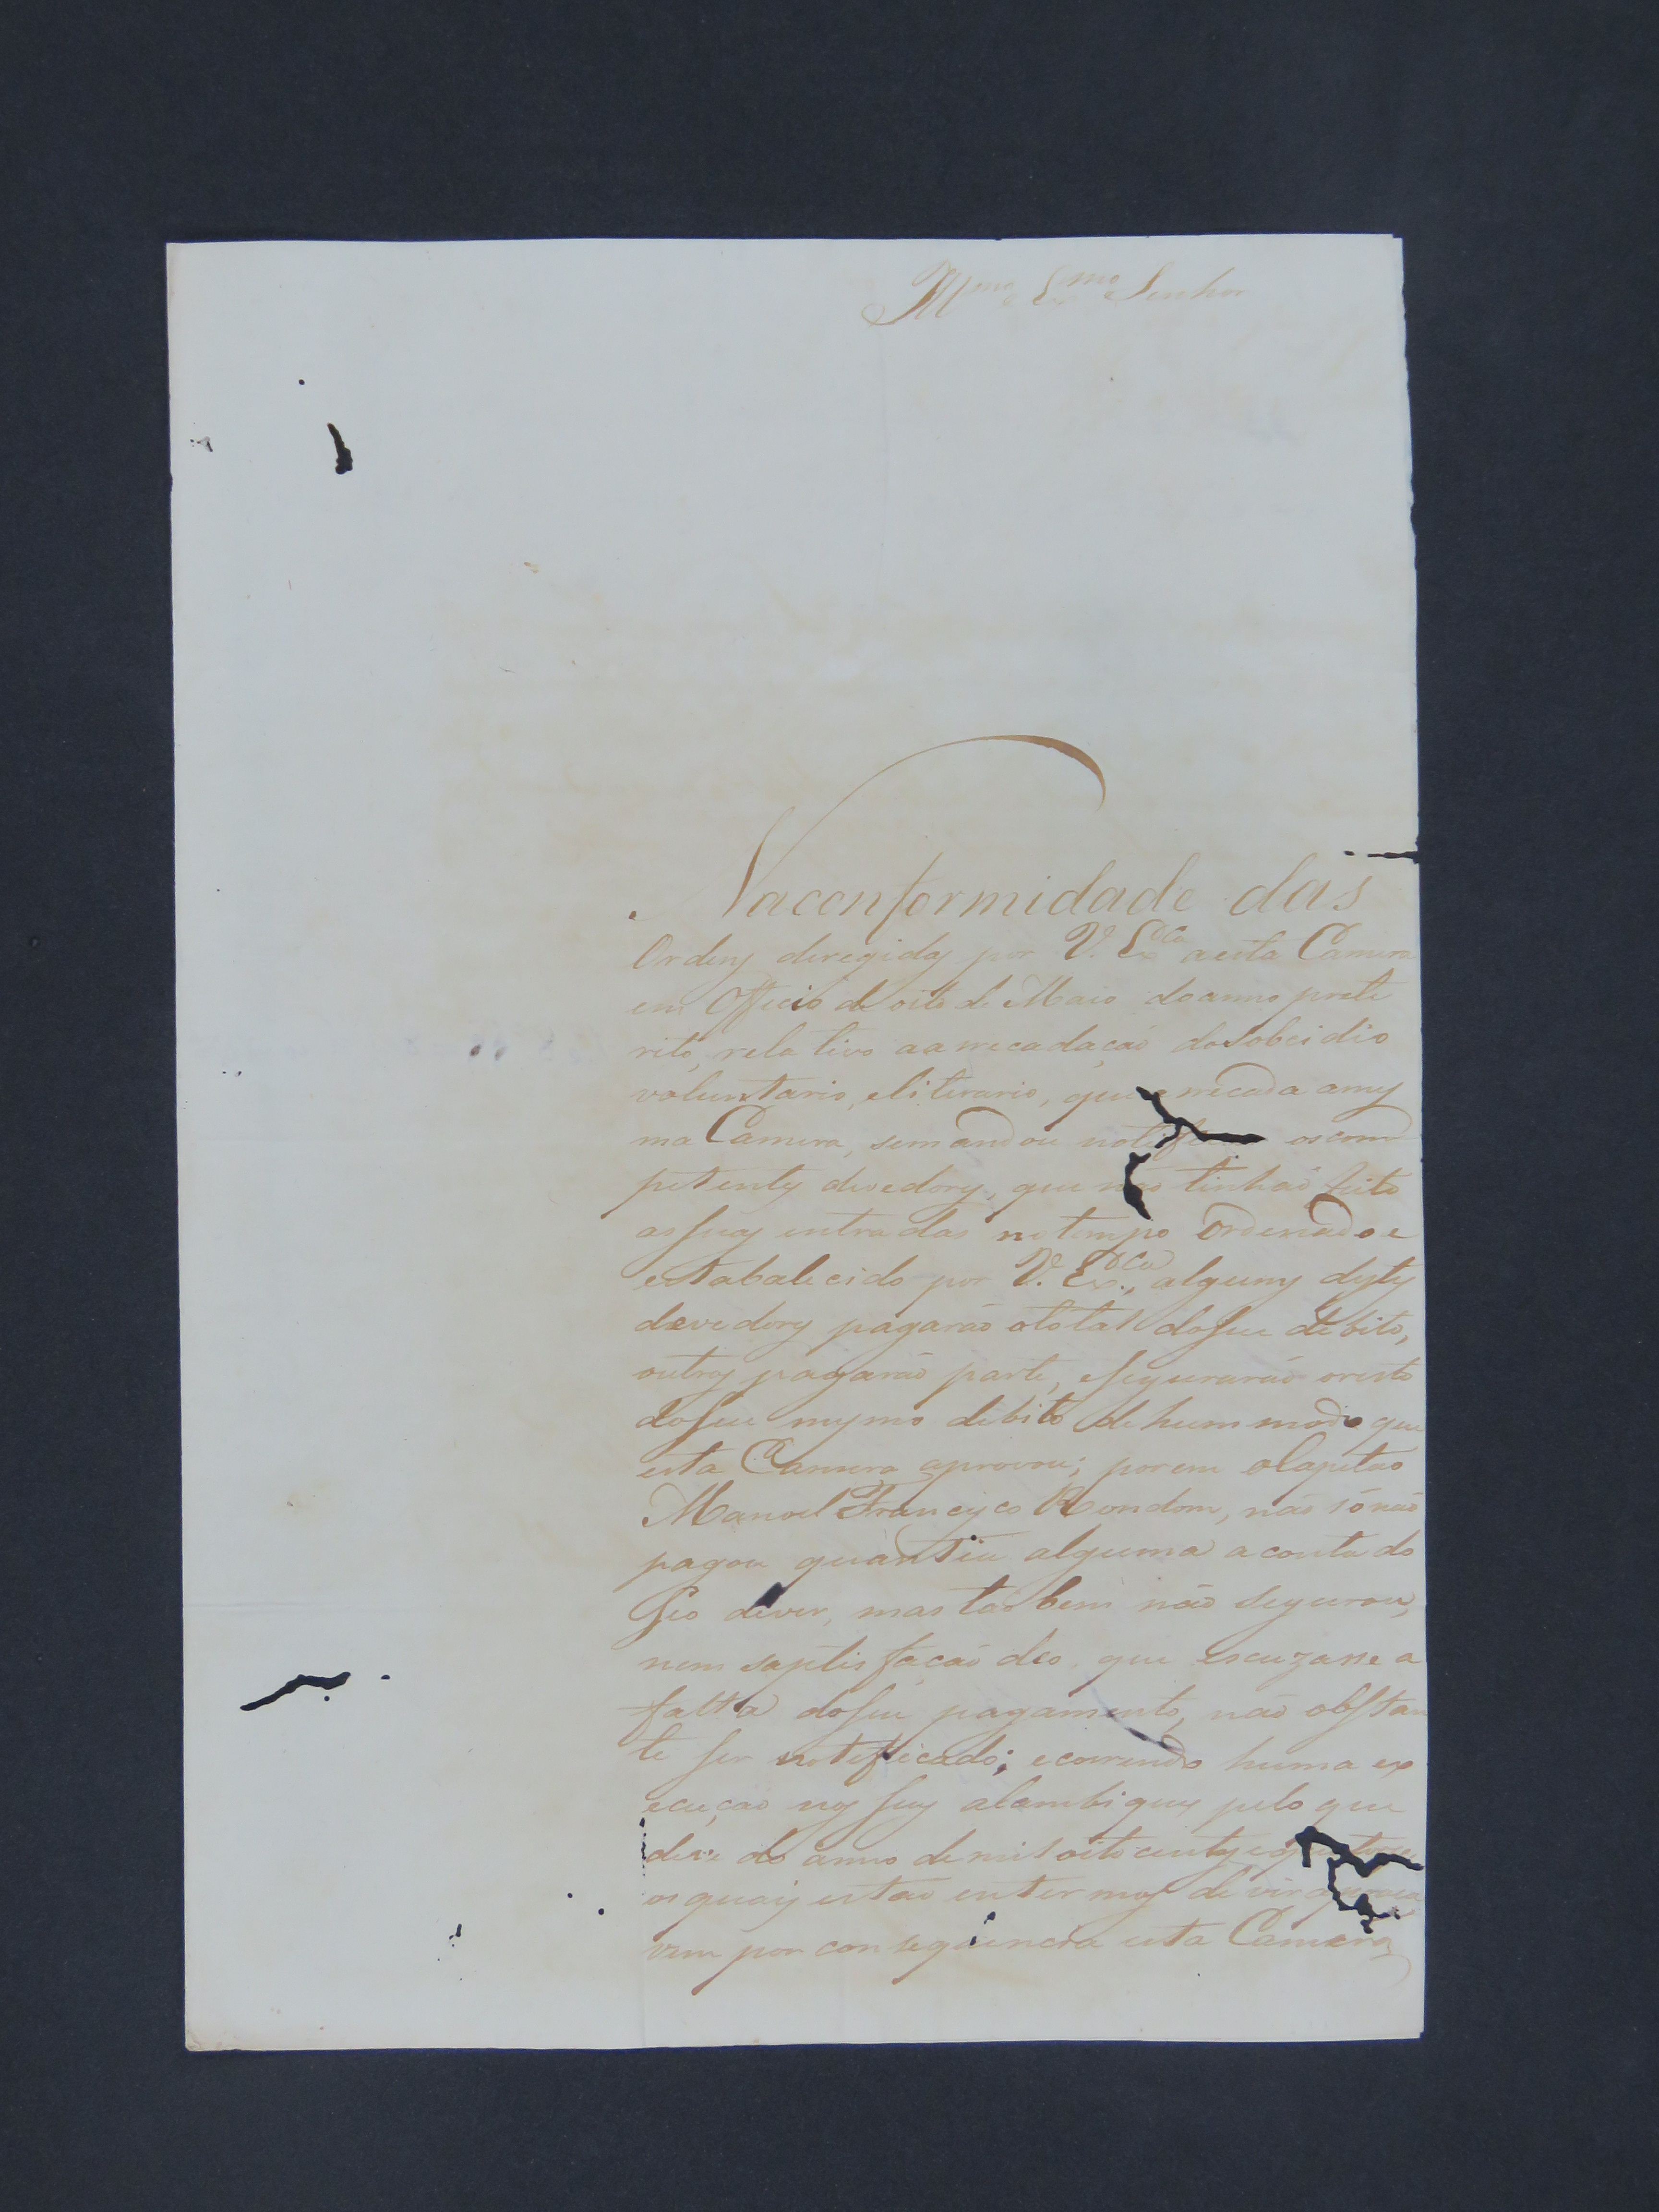 Illmo Exmo Senhor
Naconformidade das
Ordens deregidas por V. Exca aesta Camera
em Officio de oito de Maio do anno prete
rito, rela tivo aarrecadação doSobcidio
voluntario, eliterario, que arrecada ames
ma Camera, semandou os com
petentes devedores, que não tinhão feito
assuas entradas notempo Ordenado e
estabalecido por V. Exca, alguns destes
devedores pagarão ototal doseu debito,
outros pagarão parte, esegurarão oresto
doseu mesmo debito de hum modo que
esta Camera aprovou; porem oCapitão
Manoel Francisco Rondom, não só não
pagou quantia alguma aconta do
seo dever, mas tão bem não segurou,
nem saptis fação deo, que escuzasse a
falta doseu pagamento, não obstan
te ser noteficado; ecorrendo huma ex
ecução nos seus alambiques pelo que
deve do anno de mil oito centos e
os quais estão entermos de vir
vem por consequencia esta Camera,